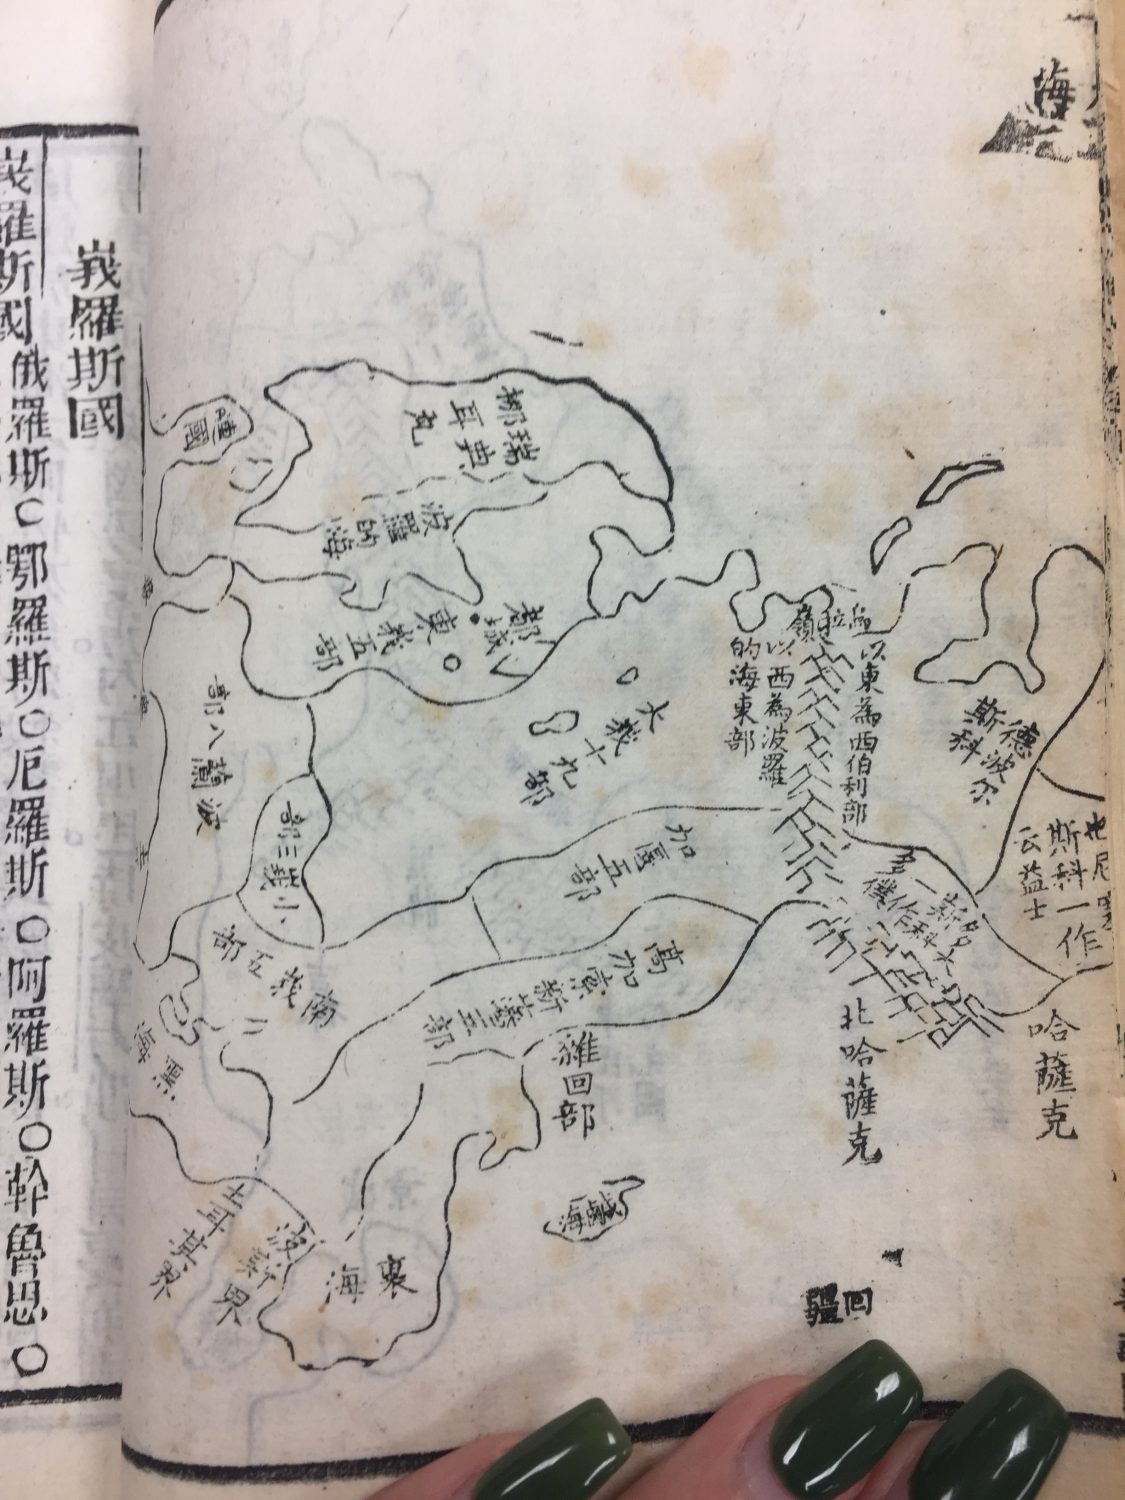 海
瑞典
那耳瓦
嗹國
波羅的海
都城
東峩五部
大峩十九部
以東為西伯利部
嶺
以西為波羅
的海東部
德波尔
斯科
斯科一作
云益士
哈薩克
北哈薩克
加匽五部
波蘭八部
小峩三部
南峩五部
黑海
雜回部
鹹海
裏海
土耳其界
波斯界
回疆
峩羅斯國
峩羅斯國 俄羅斯○鄂羅斯○厄羅斯○阿羅斯○幹魯思○